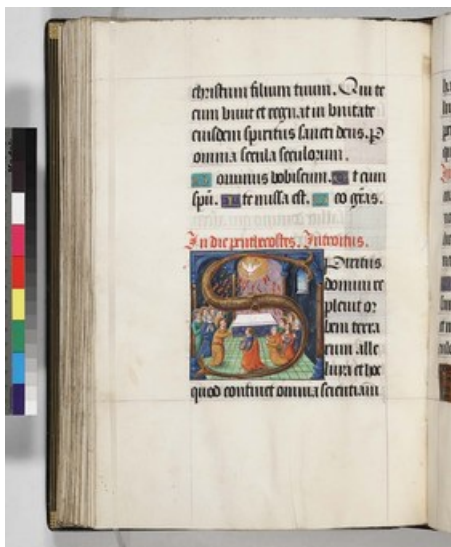 christum filium tuum. Qui te
cum viuit et regnat in vnitate
eiusdem spiritus sancti deus. P
omnia secula seculorum.
Dominus vobiscum. Et cum
spū. Ite missa est. Deo grās.
In die penthecostes. Introitus.
Spiritus
domini re
pleuit or
bem terra
rum alle
luia et hoc
quod continet omnia scientiam